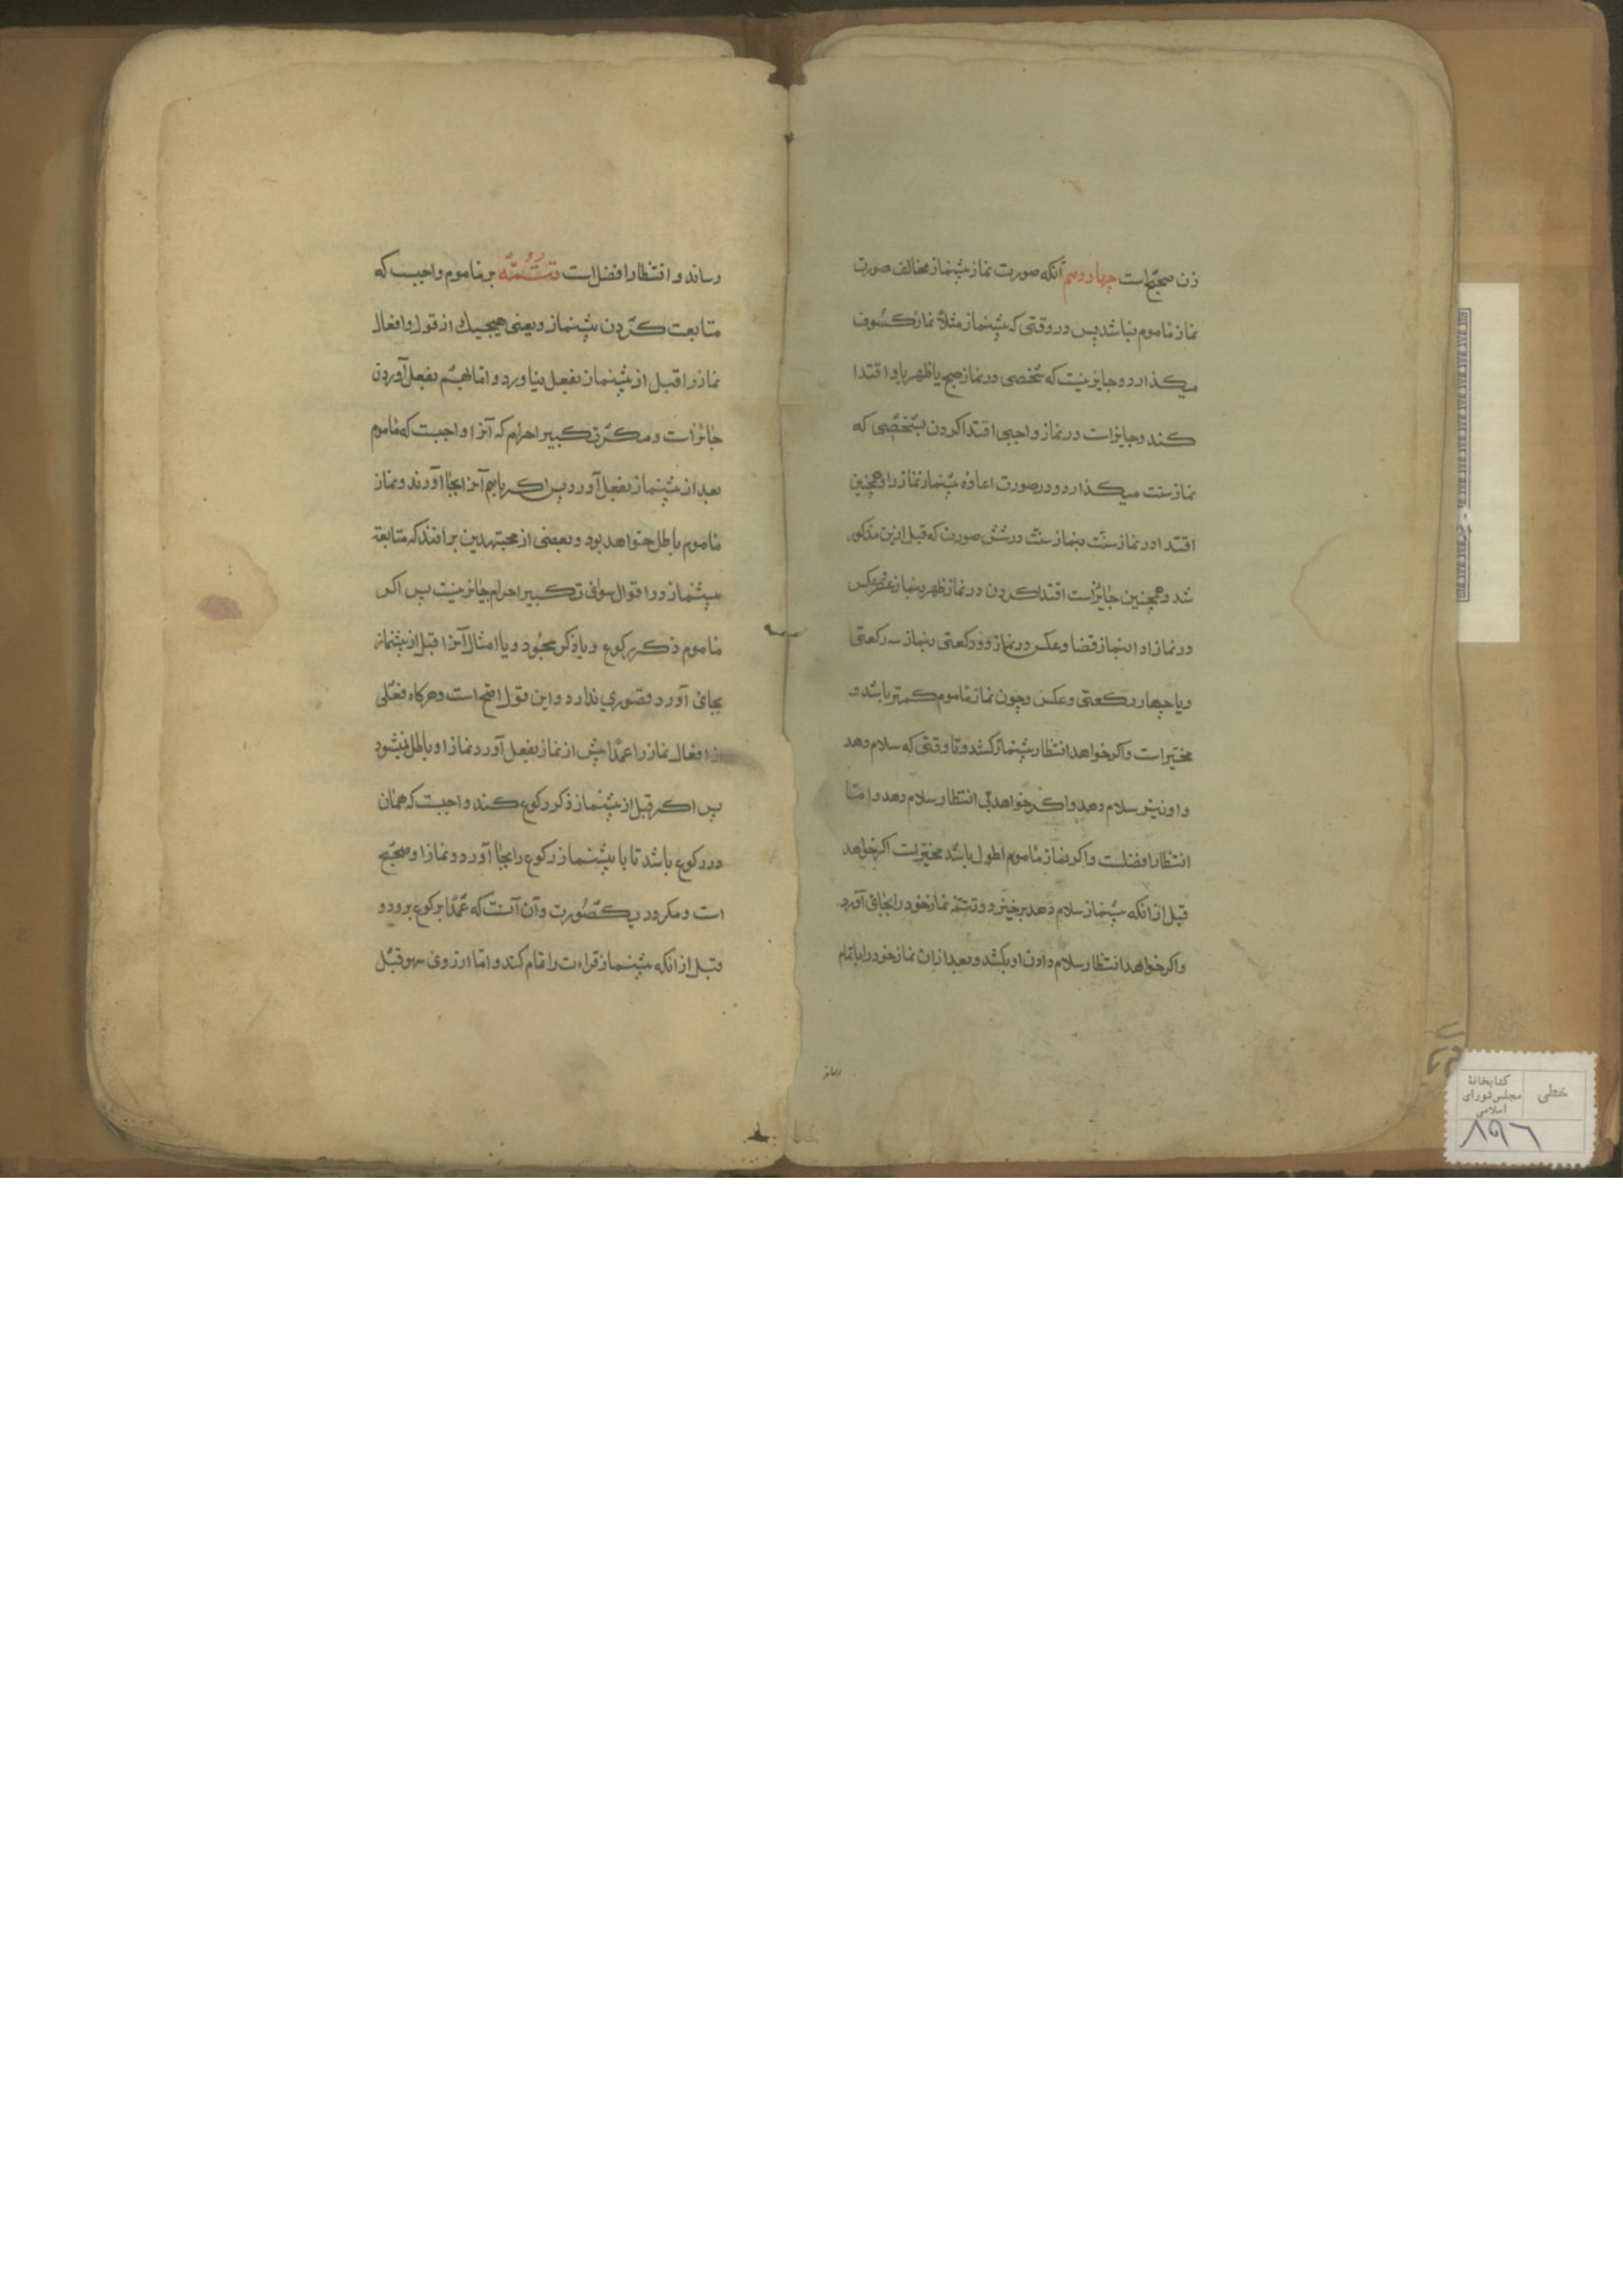 زن صحیح است چهاردهم آنکه صورت نماز پیشنماز مخالف صورت
نماز ماموم نباشد پس در وقتی که پیشنماز مثلا نماز کسوف
میکذارد و جایز نیست که شخصی در نماز صبح یا ظهر باو اقتدا
کند و جایز است در نماز واجبی اقتدا کردن بشخصی که
نماز سنت میکذارد و در صورت اعاده پیشنماز نماز را و همچنین
اقتدا در نماز سنت بنماز سنت در شش صورت که قبل ازین مذکور
شد و همچنین جایز است اقتدا کردن در نماز ظهر بنماز عصر و عکس
در نماز ادا بنماز قضا و عکس و در نماز دو رکعتی بنماز سه رکعتی
و یا چهار رکعتی و عکس و چون نماز ماموم کمتر باشد و
مخیر است و اکر خواهد انتظار پیشنماز کشد و تا وقتی که سلام دهد
و او نیز سلام دهد و اکر خواهد بی انتظار سلام دهد و اما
انتظار افضلست و اکر نماز ماموم اطول باشد مخیر است اکر خواهد
قبل از انکه پیشنماز سلام دهد برخیزد و تتمه نماز خود را بجای آورد
و اکر خواهد انتظار سلام دادن او بکشد و بعد از ان نماز خود را باتمام
رساند
رساند و انتظار افضل است تتمه بر ماموم واجب که
متابعت کردن پیشنماز و یعنی هیچیک از قول و افعال
نماز را قبل از پیشنماز بفعل نیاورد و اما بهم بفعل آوردن
جائز است و مکر تکبیر احرام که آنرا واجبست که ماموم
بعد از پیشنماز بفعل آورد پس اکر باهم آنرا بجا آورند و نماز
ماموم باطل خواهد بود و بعضی از مجتهدین برانند که متابعة
پیشنماز در اقوال سوای تکبیر احرام جایز نیست پس اکر
ماموم ذکر رکوع و یا ذکر سجود و یا امثال آنرا قبل از پیشنماز
بجای آورد قصوری ندارد و این قول اصح است و هرکاه فعلی
از افعال نماز را عمدا پیش از نماز بفعل آورد نماز او باطل نیشود
پس اکر قبل از پیشنماز ذکر رکوع کند واجبست که همان
در رکوع باشد تا با پیشنماز رکوع را بجا آورد و نماز او صحیح
است و مکر در یک صورت و آن آنست که عمدا برکوع برود و
قبل از انکه پیشنماز قراءت را تمام کند و اما از روی سهو قبل
خطی
کتابخانهٔ
مجلس شورای
اسلامی
۸۹۶